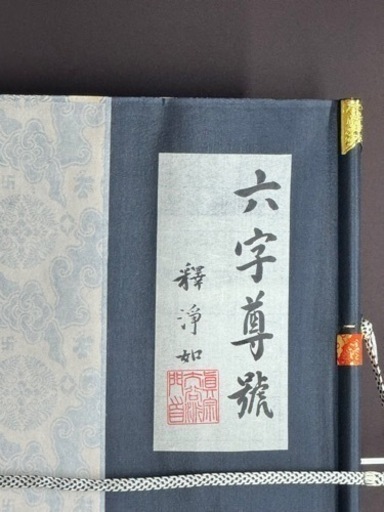 六字尊號
釋淨如